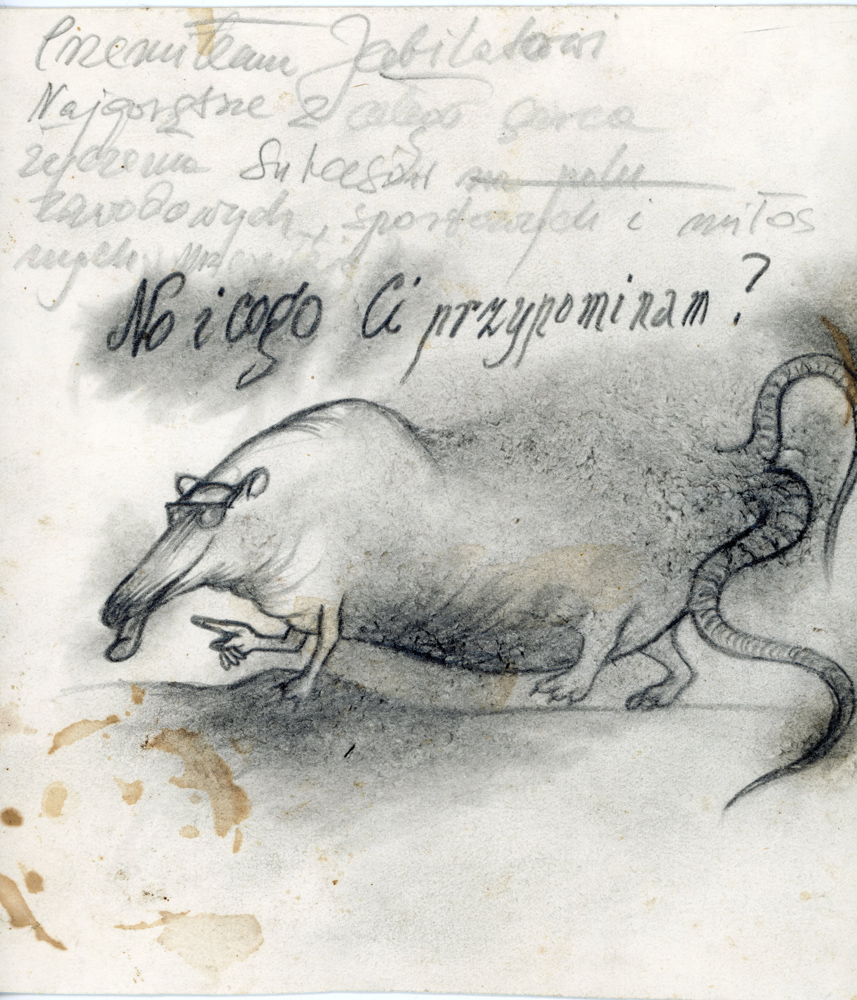 Przemiłemu Jubilatowi
Najgorętsze z całego serca
życzenia sukcesów na polu
zawodowych, sportowych i miłos
nych
No i cogo Ci przypominam?